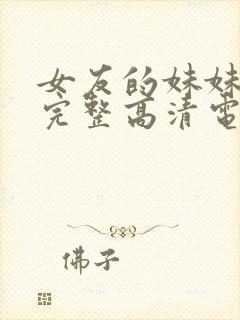 女友的妹妹
完整高清電
佛子